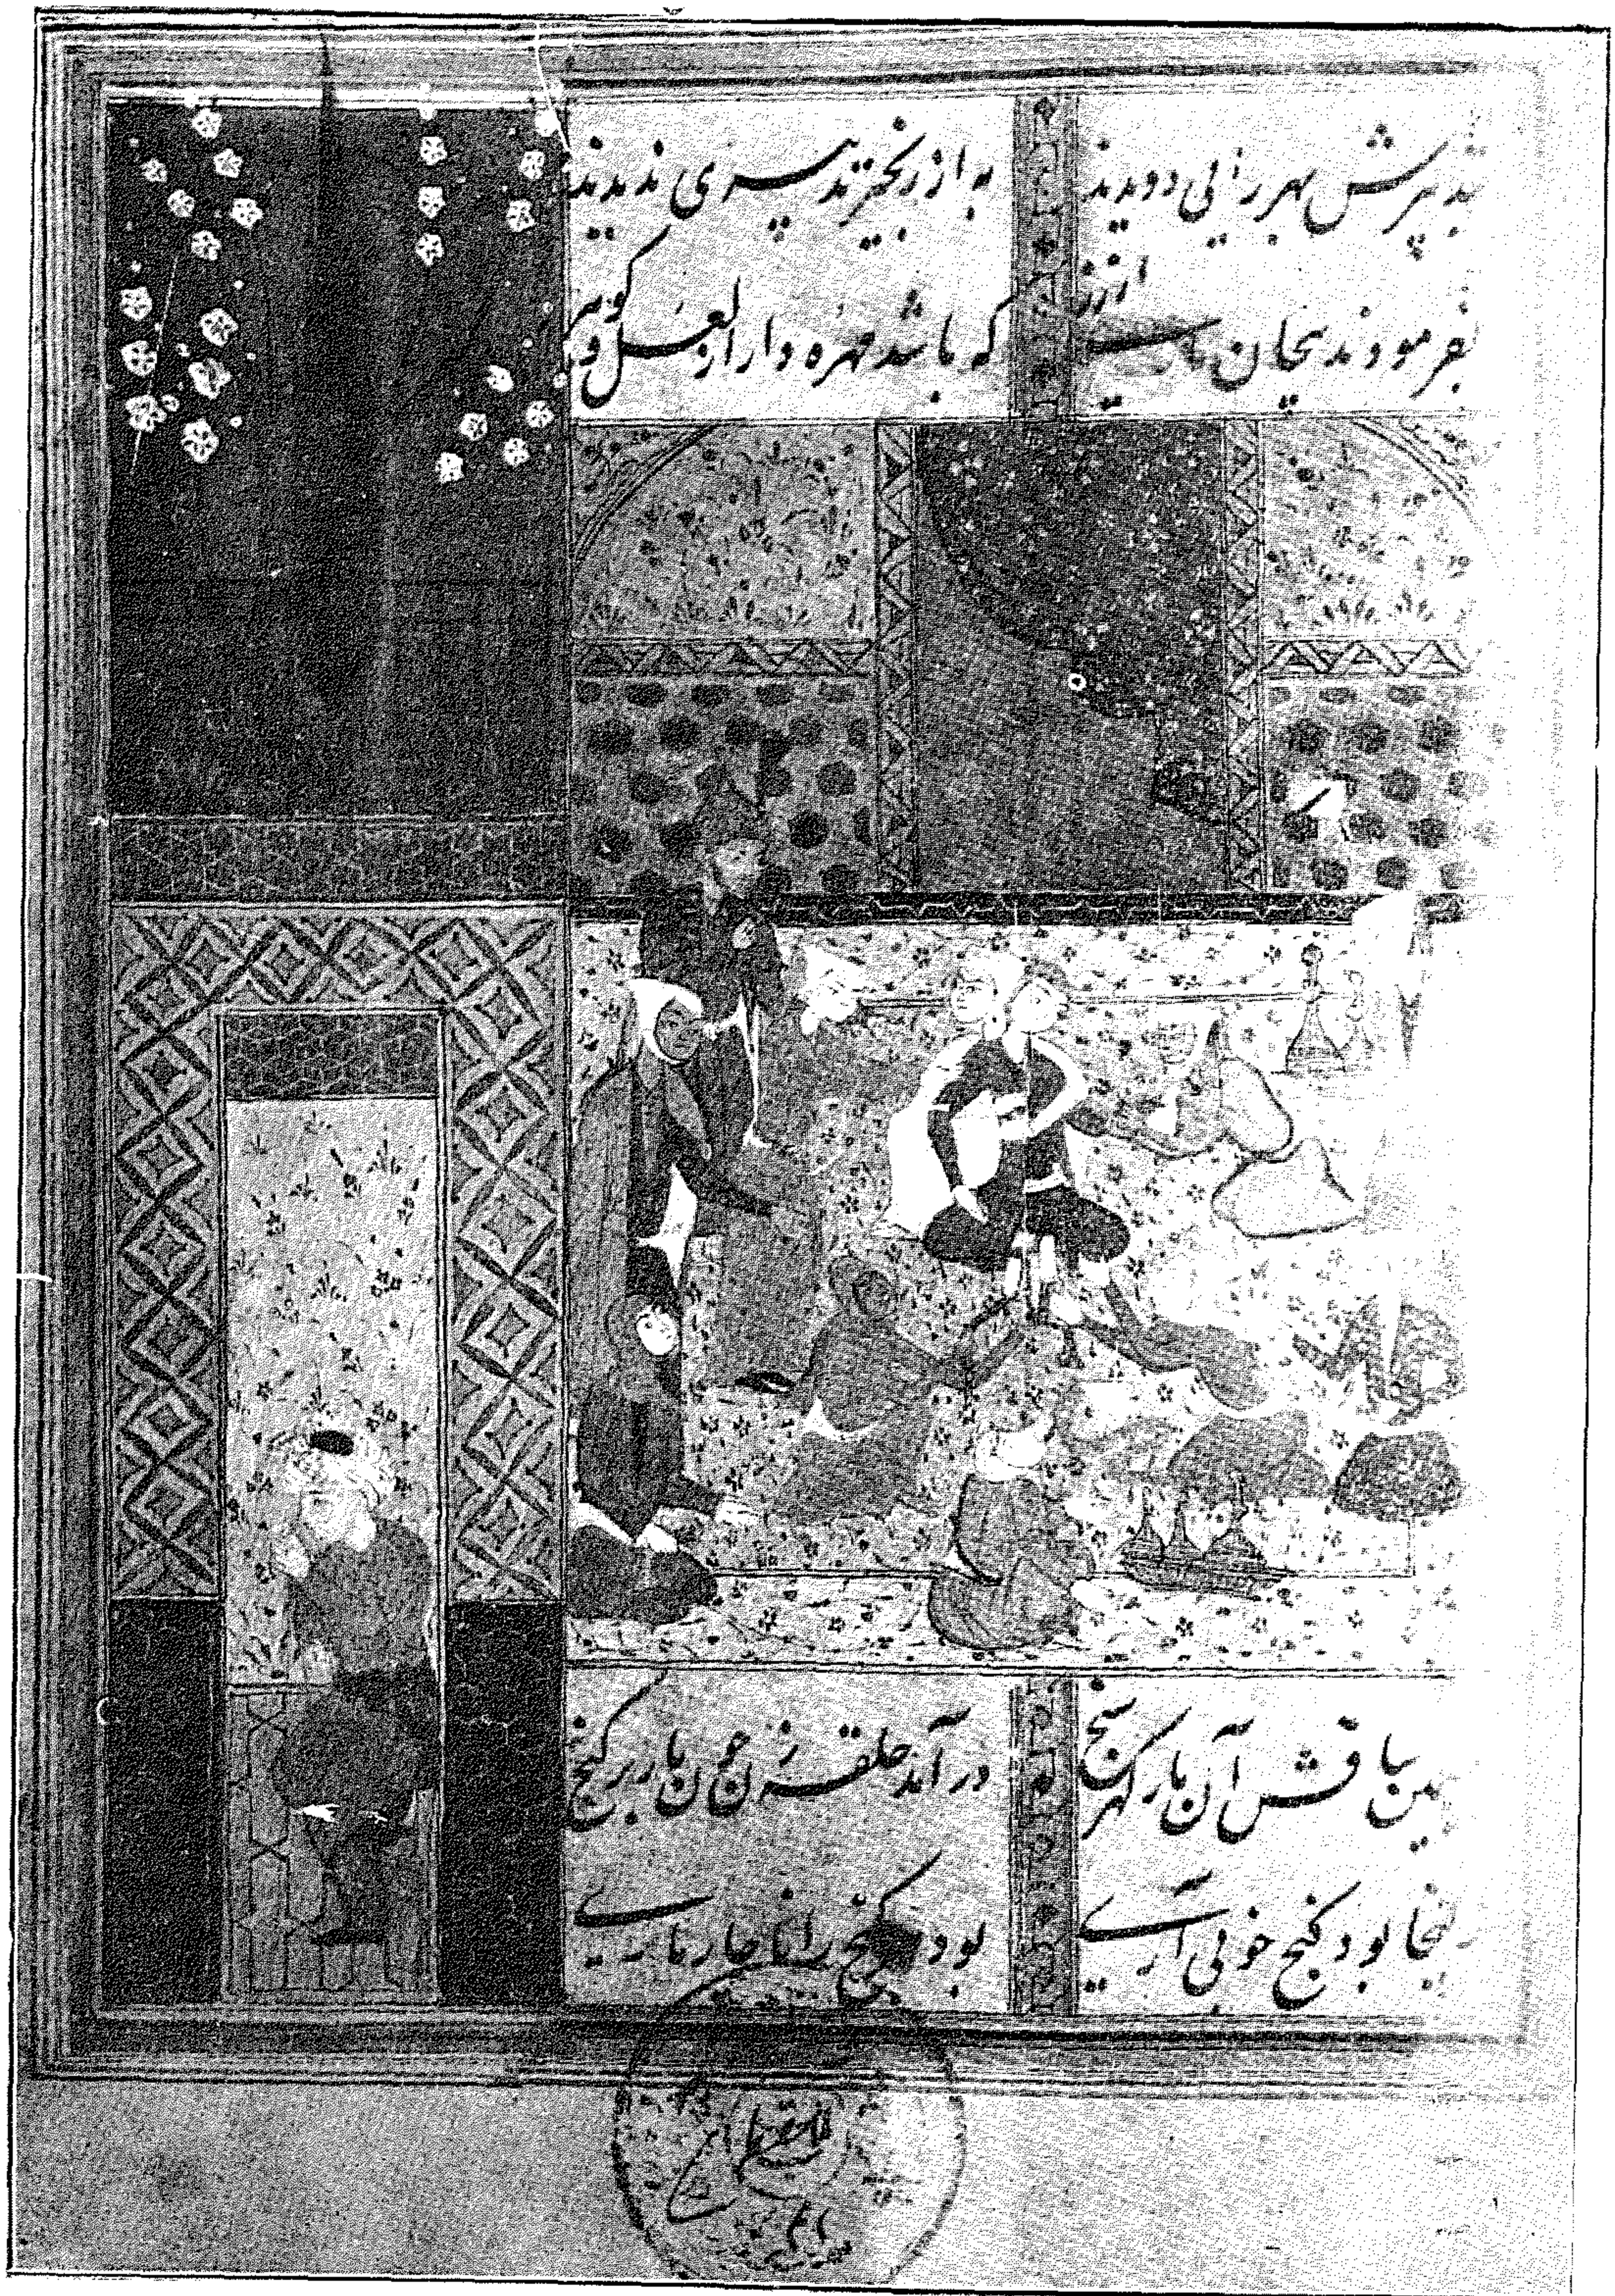 به تدبیرش بهر رائی دویدند به از زنجیر تدبیری ندیدند
بفرمودند بیجان ماری از زر که باشد مهره دار از لعل و گوهر
سیمین ساقش آن مار گهرسنج در آمد حلقه زن چون مار بر گنج
بود گنج خوبی آری بود گنج را ناچار ماری